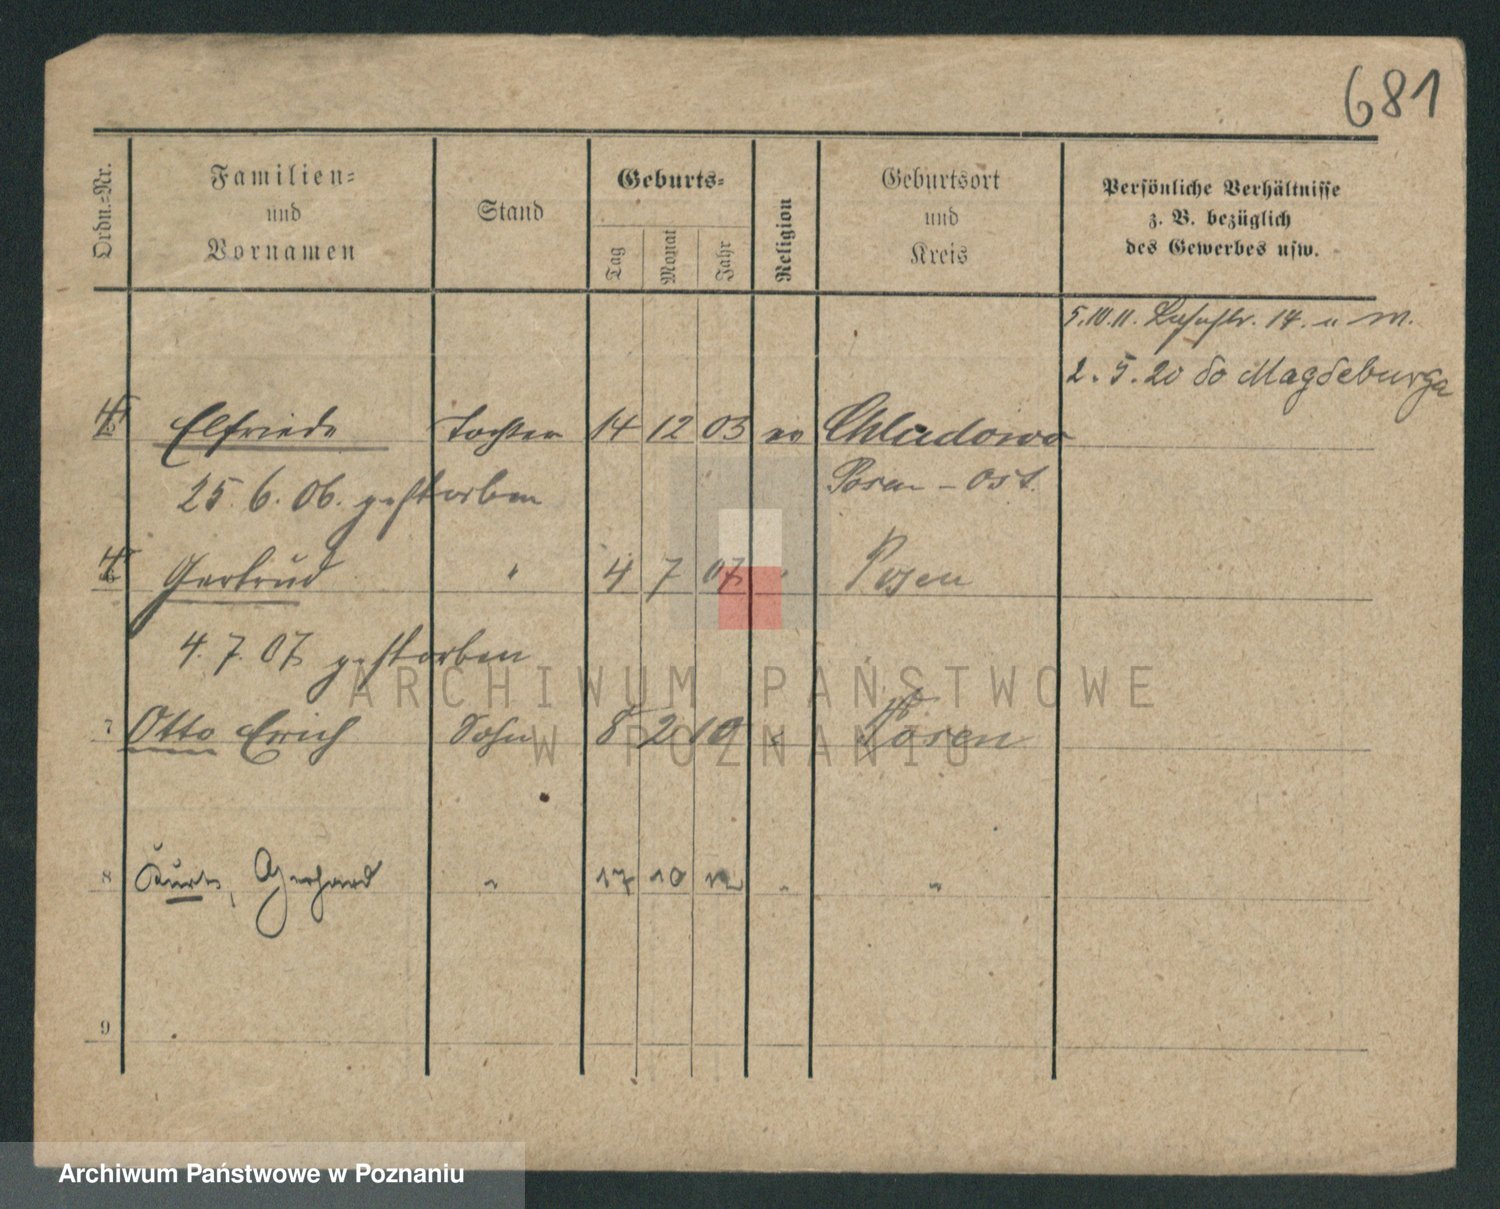 681
Ordn.-Nr.
Familien-
und
Vornamen
Stand
Geburts-
Tag
Monat
Jahr
Religion
Geburtsort
und
Kreis
Persönliche Verhältnisse
z. B. bezüglich
des Gewerbes usw.
5.10.11. 14. u M.
2.5.20 do Magdeburga
Elfriede Tochter 14 12 03 ev Chladowo
25.6.06. gestorben Posen-Ost.
Gertrud " 4 7 07 " Posen
4.7.07 gestorben
7 Otto Erich Sohn 8 2 10 " Posen
8 Kurt, Gerhard " 17 10 12 " "
9
ARCHIWUM PAŃSTWOWE
W POZNANIU
Archiwum Państwowe w Poznaniu